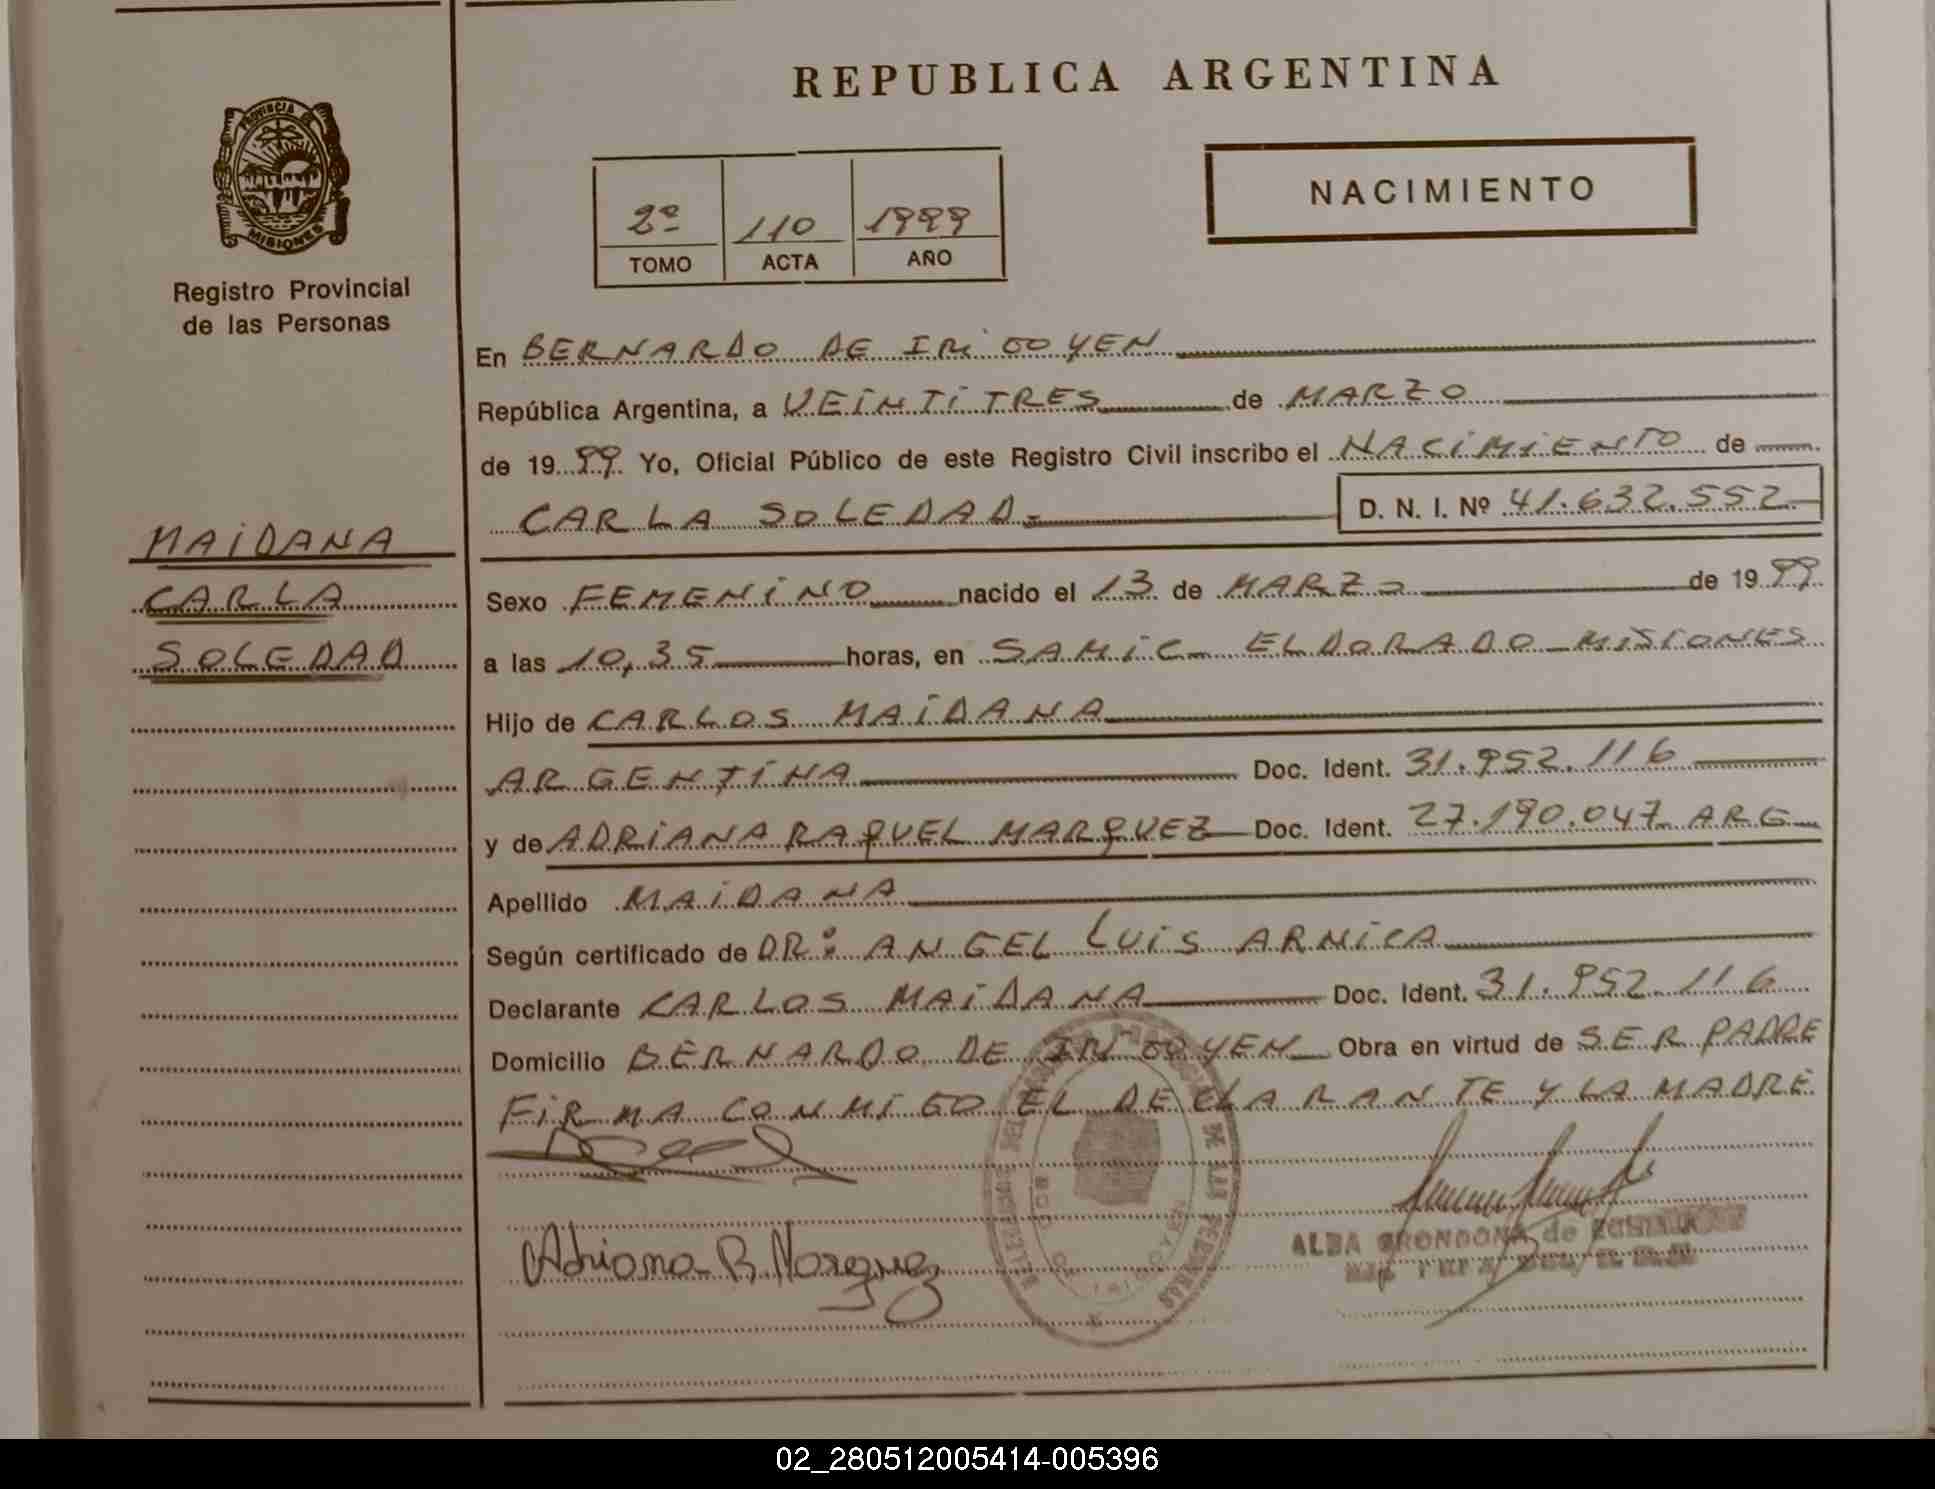 REPUBLICA ARGENTINA
PROVINCIA DE
MISIONES
Registro Provincial
de las Personas
NACIMIENTO
2º 110 1999
TOMO ACTA AÑO
En BERNARDO DE IRIGOYEN
República Argentina, a VEINTITRES de MARZO
de 1999 Yo, Oficial Público de este Registro Civil inscribo el NACIMIENTO de
CARLA SOLEDAD.- D. N. I. Nº 41.632.552
MAIDANA
CARLA
SOLEDAD
Sexo FEMENINO nacido el 13 de MARZO de 1999
a las 10,35 horas, en SAMIC ELDORADO MISIONES
Hijo de CARLOS MAIDANA
ARGENTINA Doc. Ident. 31.952.116
y de ADRIANA RAQUEL MARQUEZ Doc. Ident. 27.190.047 ARG
Apellido MAIDANA
Según certificado de DR: ANGEL LUIS ARNICA
Declarante CARLOS MAIDANA Doc. Ident. 31.952.116
Domicilio BERNARDO DE IRIGOYEN Obra en virtud de SER PADRE
FIRMA CONMIGO EL DECLARANTE Y LA MADRE
Adriana R. Marquez
ALBA GRONDONA de
02_280512005414-005396